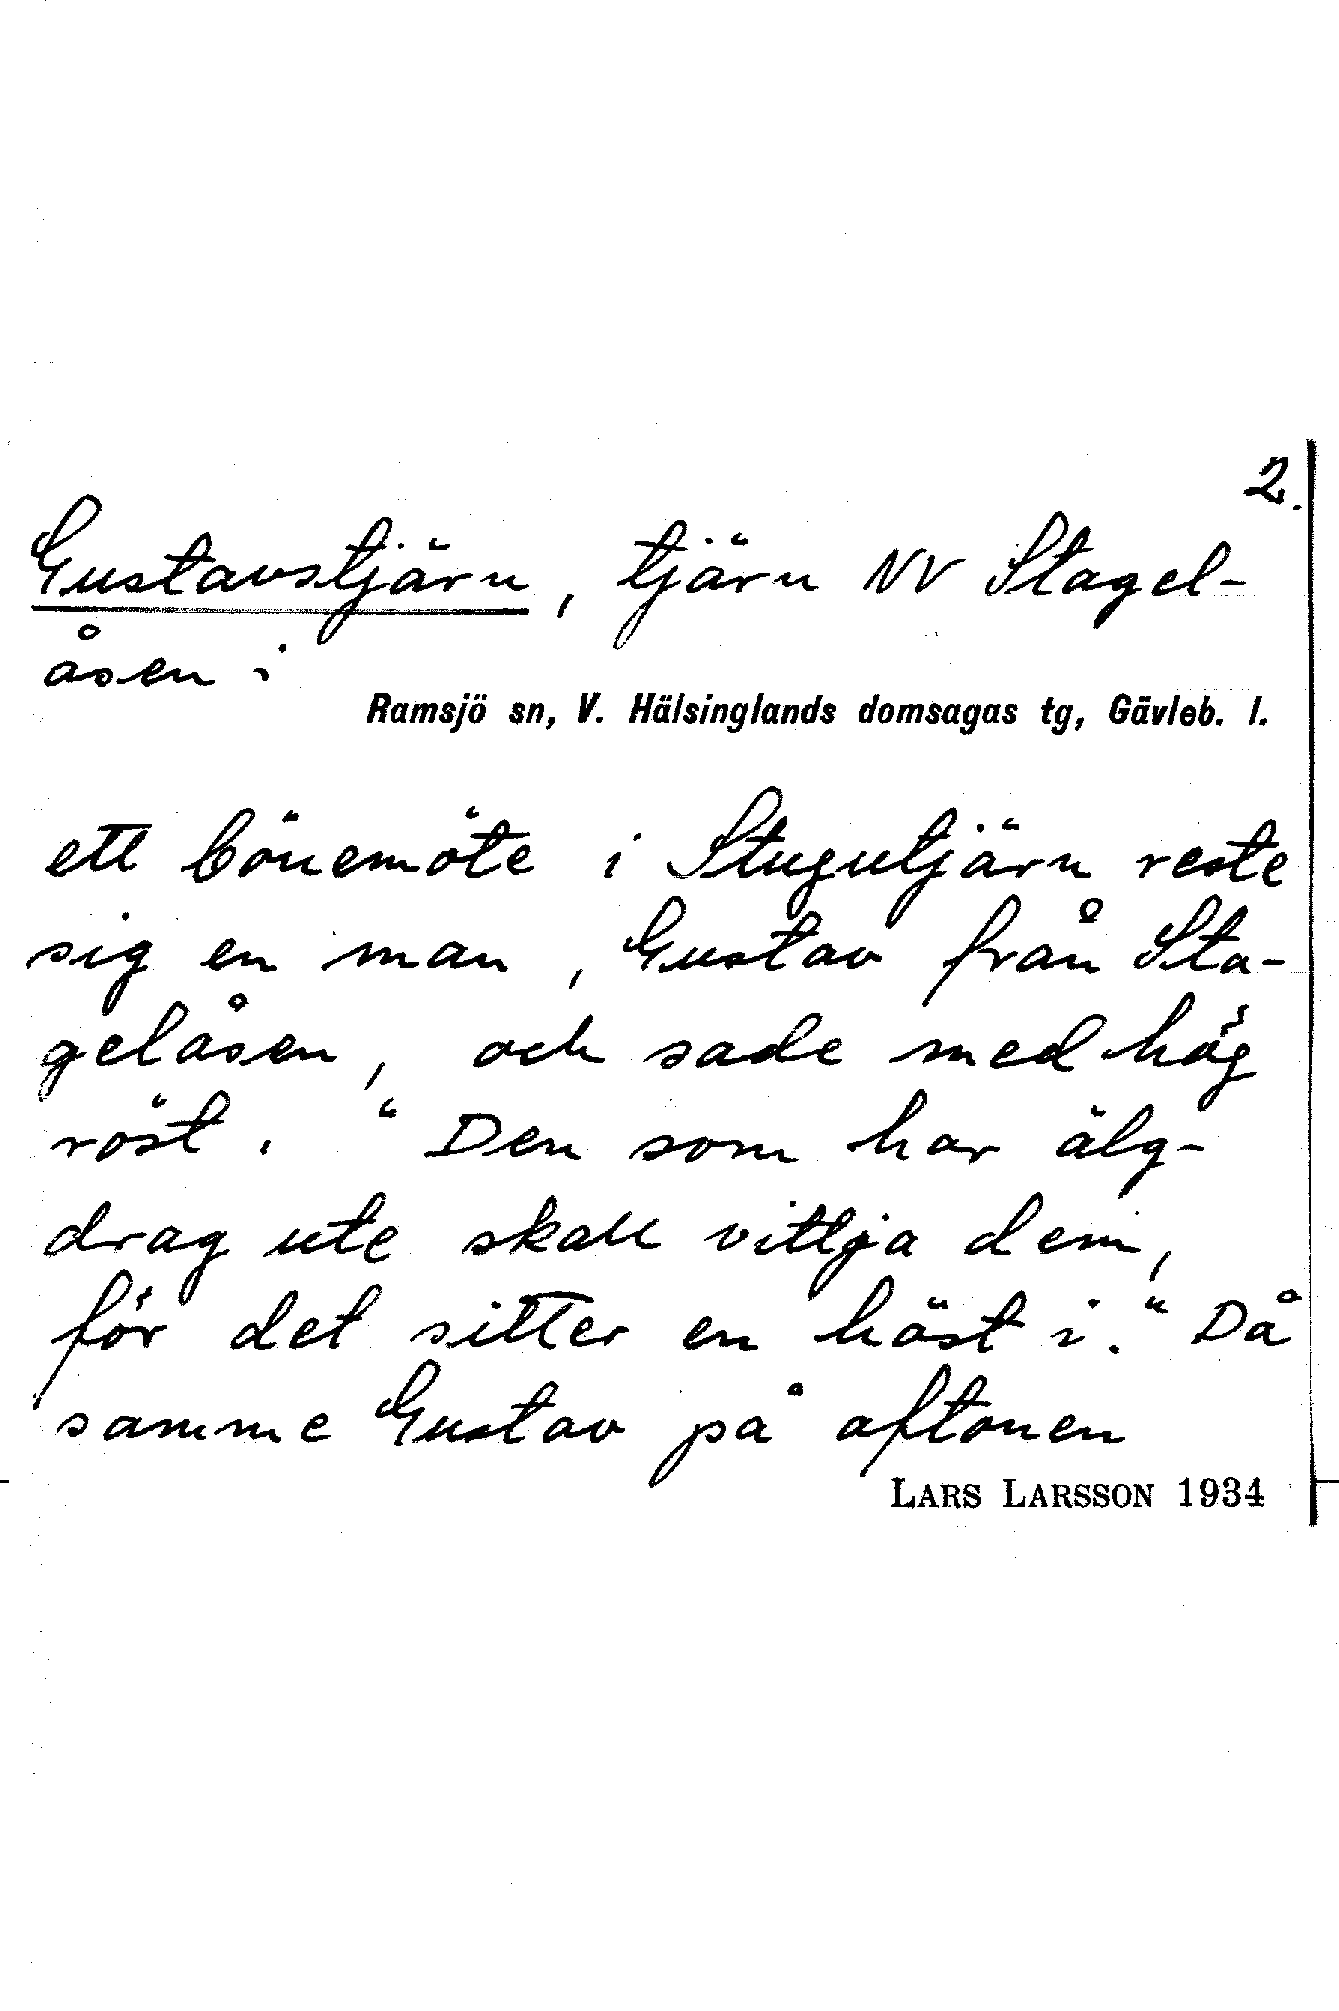 2.
Gustavstjärn, tjärn NV Stagel-
åsen i
Ramsjö sn, V. Hälsinglands domsagas tg, Gävleb. l.
ett bönemöte i Stugutjärn reste
sig en man, Gustav från Sta-
gelåsen, och sade med hög
röst. "Den som har älg-
drag ute skall vittja dem,
för det sitter en häst i." Då
samme Gustav på aftonen
LARS LARSSON 1934